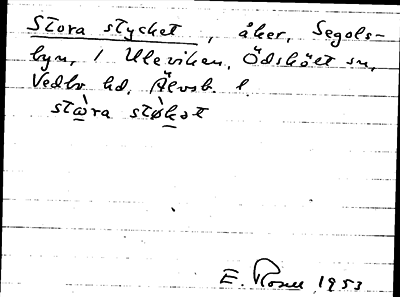 Stora stycket, åker, Segols-
byn, / Uleviken, Ödskölt sn,
Vedbo hd, Älvsb. l.
stɷ̀ra stø̀kət
E. Rosell 1953